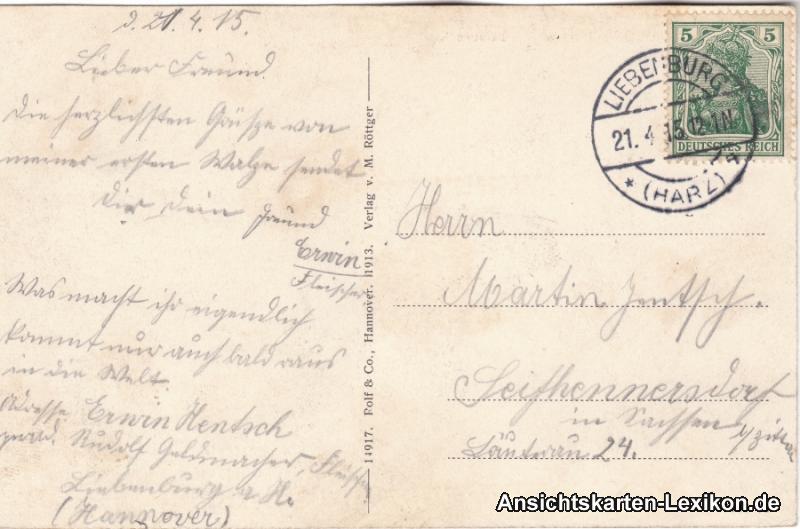 d. 21.4.15.
Lieber Freund.
Die herzlichsten Grüsze von
meiner ersten Walze sendet
Dir Dein Freund
Erwin
Fleischer
Was macht ihr eigendlich
kommt nur auch bald raus
in die Welt.
Adresse Erwin Hentsch
Rudolf Geldmacher, Fleischer
Liebenburg a. H.
(Hannover)
14917. Folf & Co., Hannover. 1913. Verlag v. M. Röttger
5 5
DEUTSCHES REICH
LIEBENBURG
21. 4. 15. 12-1 N.
* (HARZ)
Herrn
Martin Jentsch.
Seifhennersdorf
in Sachsen
b/Zittau
24.
Ansichtskarten-Lexikon.de